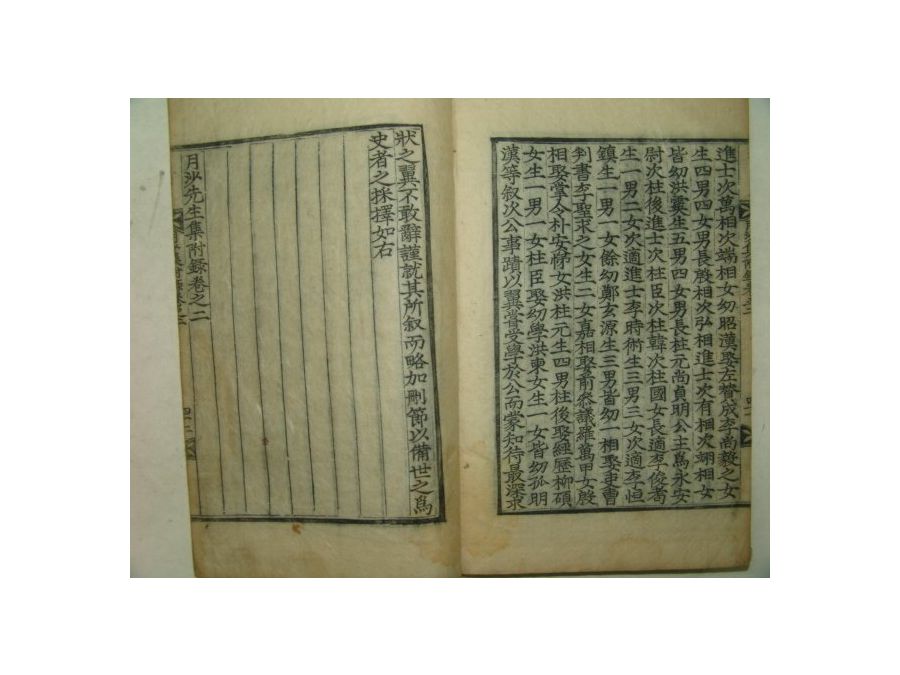 進士次萬相次端相女幼昭漢娶左贊成李尚毅之女
生四男四女男長殷相次弘相進士次有相次翊相女
皆幼洪霙生五男四女男長柱元尚貞明公主爲永安
尉次柱後進士次柱臣次柱韓次柱國女長適李俊耉
生一男二女次適進士李時術生三男三女次適李恒
鎮生一男一女餘幼鄭玄源生三男皆幼一相娶吏曹
判書李聖求之女生二女嘉相娶前參議羅萬甲女殷
相娶掌令朴安悌女洪柱元生四男柱後娶經歷柳碩
女生一男一女柱臣娶幼學洪東女生一女皆幼孤明
漢等叙次公事蹟以翼嘗受學於公而蒙知待最深求
狀之翼不敢辭謹就其所叙而略加刪節以備世之爲
史者之採擇如右
月沙先生集附錄卷之二